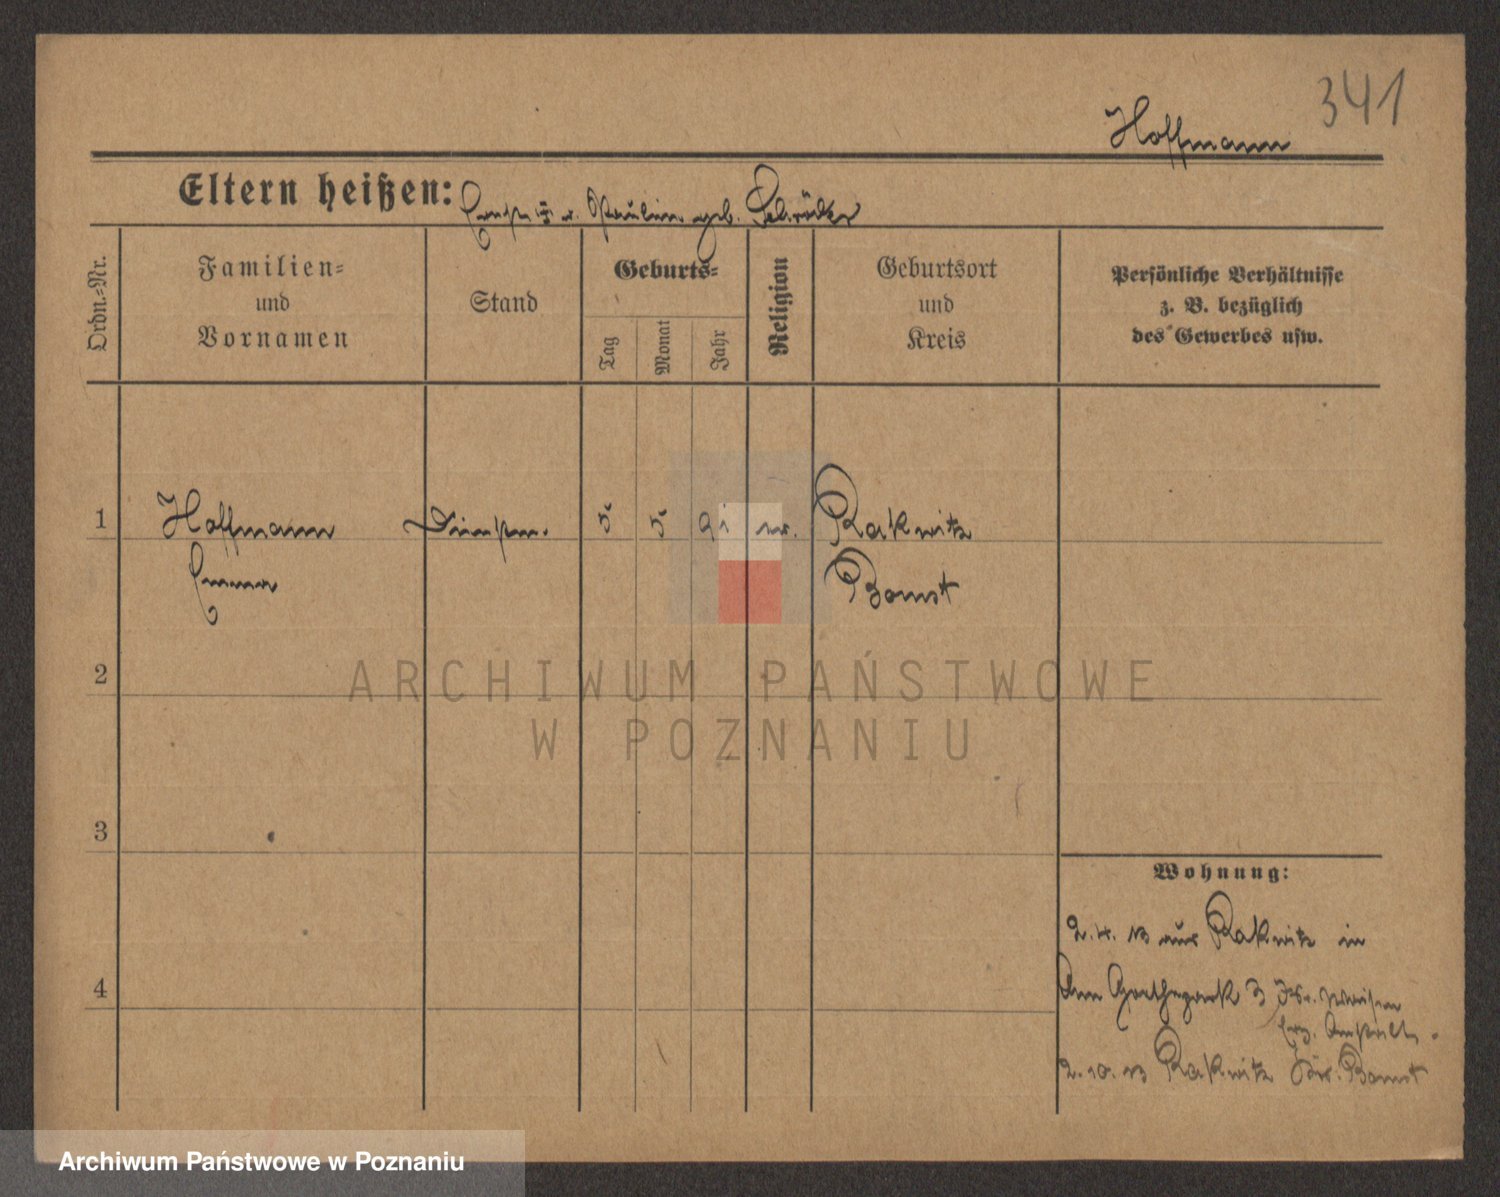 341
Hoffmann
Eltern heißen: Ernst u. Pauline geb. Schröder
Ordn.-Nr.
Familien-
und
Vornamen
Stand
Geburts-
Tag
Monat
Jahr
Religion
Geburtsort
und
Kreis
Persönliche Verhältnisse
z. B. bezüglich
des Gewerbes usw.
1 Hoffmann 5. 5. 91 ev. Rakwitz
Emma Bomst
2
ARCHIWUM PAŃSTWOWE
W POZNANIU
3
Wohnung:
2.4.13 aus Rakwitz in
4
Am Goethepark 3 Isr. Waisen
Erz. Anstalt.
2.10.13 Rakwitz Kr. Bomst
Archiwum Państwowe w Poznaniu